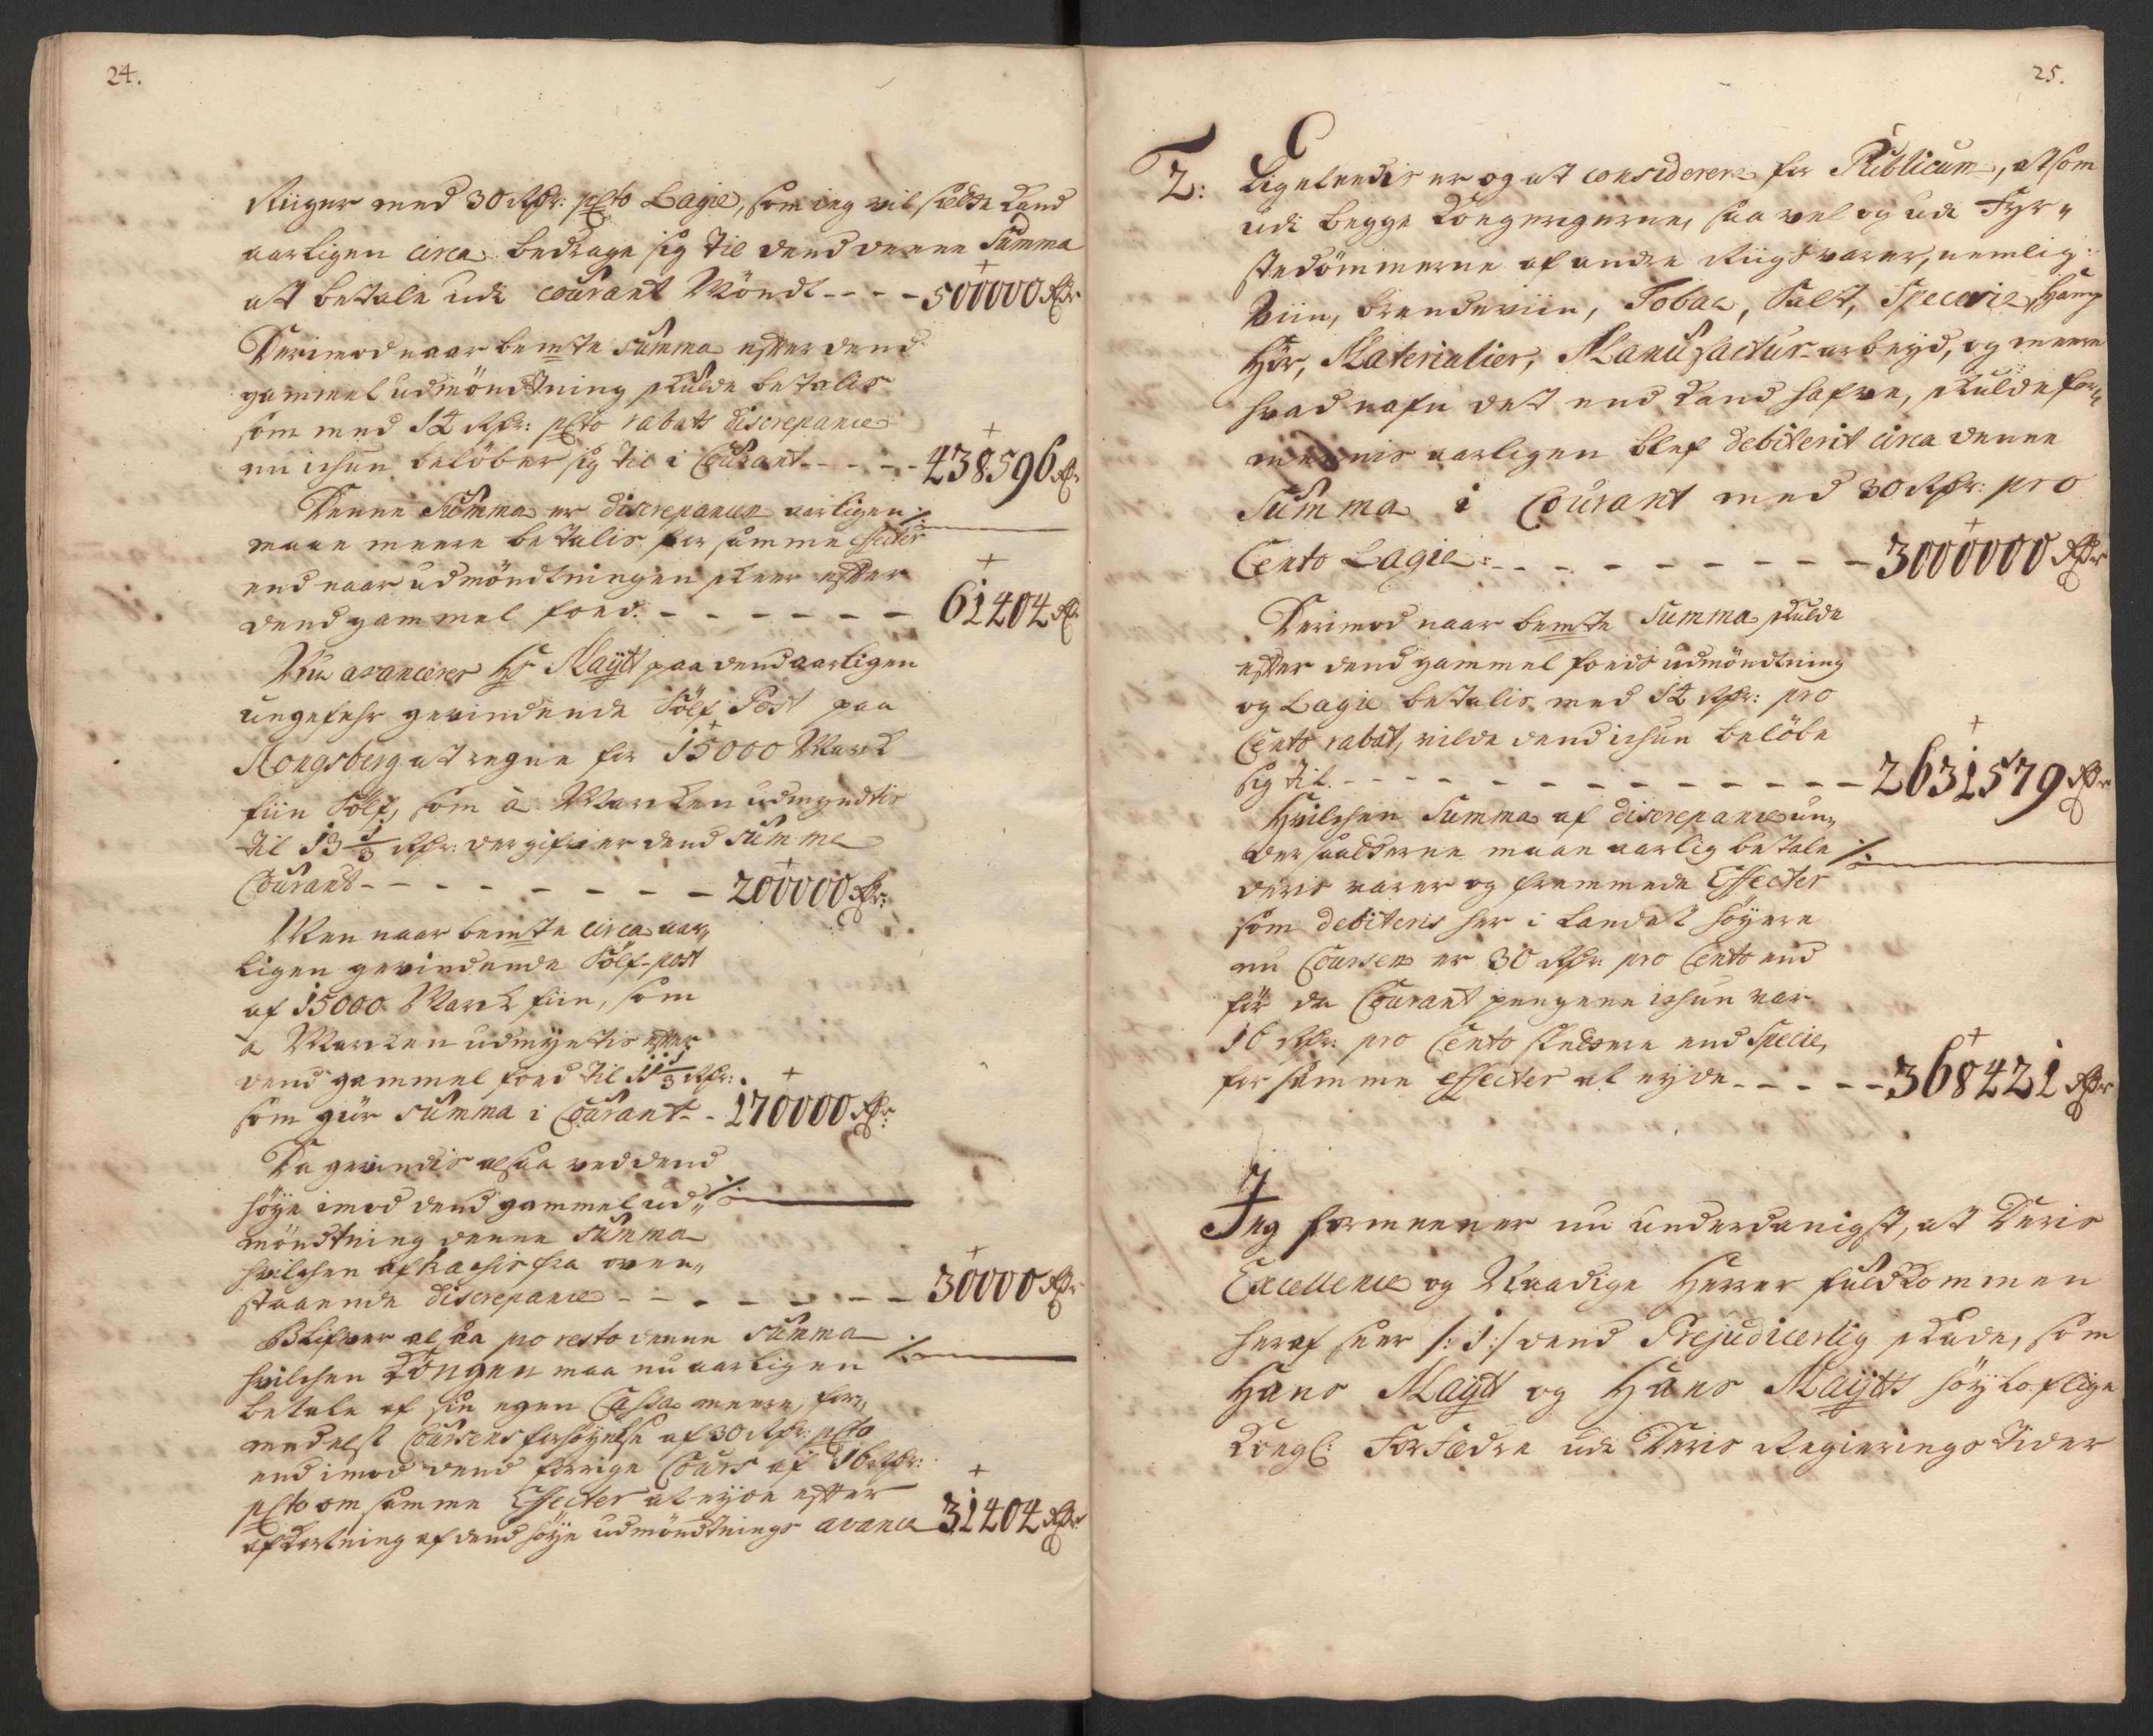 24.
Riiger med 30 Rdr: pCto Lagie, som ieg vil sætte kand
aarligen circa bedrage sig til dend denne Summa
att betale udi courant Möndt - - - - 500000 Rdr
Derimod naar bemte Summa efter dend
gammel udmöndtning skulde betalis
som med 14 Rdr: pCto rabatt discrepance
nu ichun belöber sig til i Courant - - - - - 438596 Rdr
Denne Summa er discrepancen aarligen ./.
maae meere betalis for samme Effecter
end naar udmöndtningen skeer efter
dend gammel foed. - - - - - - 61404 Rdr
Nu avancerer Hs Maytt paa dend aarligen
ungefehr gevindende Sölf Post paa
Kongsberg at regne for 15000 Marck
fiin Sölf, som à Marcken udmyndtis
til 13 1/3 Rdr: der gifver dend Summa
Courant - - - - - - - - 200000 Rdr:
Men naar bemte circa aar„
ligen gevindende Sölf-post
af 15000 Marck fiin, som
a Marcken udmyntis efter
dend gammel foed til 11 1/3 Rdr:
som giör Summa i Courant - - 170000 Rdr:
Da gevindis altsaa ved dend
höye imod dend gammel ud„ ./.
möndtning denne Summa
hvilchen afkachis fra oven„
staaende discrepance - - - - - - - 30000 Rdr
Blifver altsaa pro resto denne Summa ./.
hvilchen Kongen maa nu aarligen
betale af sin egen Cassa meere, for„
medelst Coursens forhöyelse af 30 Rdr: pCto
end imod dend forrige Cours af 16 Rdr:
pCto om samme Effecter at nyde efter
afkortning af dend höye udmöndtnings avance 31404 Rdr
25.
2: Ligeledis er og at considerere for Publicum, at som
udi begge Kongerigerne, saa vel og udi Fyr„
stedömmerne af andre Riigs varer, nemlig:
Viin, Brendeviin, Tobac, Salt, Specerie, Hamp
Hör, Materialier, Manufactur-arbeyd, og meere
hvad nafn det end kand hafve, skulde for„
meenis aarligen blef debiterit circa denne
Summa i Courant med 30 Rdr: pro
Cento Lagie: - - - - - - - - - 3000000 Rdr
Derimod naar bemte Summa skulde
efter dend gammel foeds udmöndtning
og Lagie betalis med 14 Rdr: pro
Cento rabat, vilde dend ichun belöbe
sig til. - - - - - - - - - - - - 2631579 Rdr
Hvilchen Summa af discrepance un„
dersaatterne maae aarlig betale ./.
deris varer og fremmede Effecter
som debiteris her i Landet höyere
nu Coursen er 30 Rdr: pro Cento end
för da Courant pengene ichun var
16 Rdr: pro Cento slettere end Specie,
for samme effecter at nyde - - - - - 368421 Rdr
Jeg formeener nu underdanigst, at Deris
Excellence og Naadige Herrer fuldkommen
heraf seer /: 1 :/ dend Prejudicerlig skade, som
Hans Maytt og Hans Maytts höyloflige
Kongl: Forfædre udi Deris Regierings tider